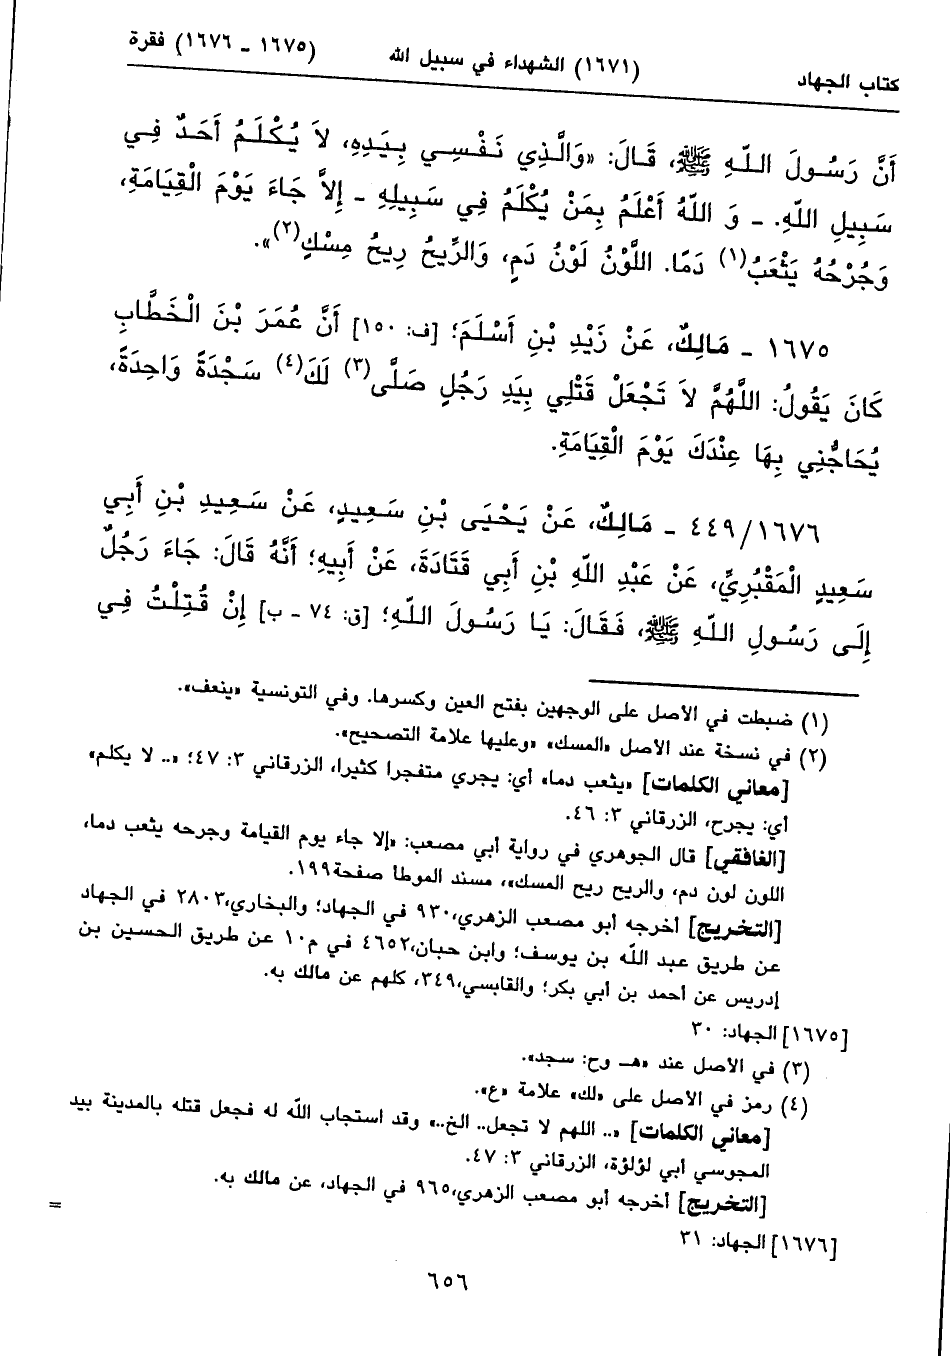 كتاب الجهاد (١٦٧١) الشهداء في سبيل الله (١٦٧٥ ـ ١٦٧٦) فقرة
أَنَّ رَسُولَ اللّهِ ﷺ، قَالَ: «وَالَّذِي نَفْسِي بِيَدِهِ، لاَ يُكْلَمُ أَحَدٌ فِي
سَبِيلِ اللّهِ. ـ وَ اللّهُ أَعْلَمُ بِمَنْ يُكْلَمُ فِي سَبِيلِهِ ـ إِلاَّ جَاءَ يَوْمَ الْقِيَامَةِ،
وَجُرْحُهُ يَثْعَبُ(١) دَمًا. اللَّوْنُ لَوْنُ دَمٍ، وَالرِّيحُ رِيحُ مِسْكٍ(٢)».
١٦٧٥ ـ مَالِكٌ، عَنْ زَيْدِ بْنِ أَسْلَمَ؛ [ف: ١٥٠] أَنَّ عُمَرَ بْنَ الْخَطَّابِ
كَانَ يَقُولُ: اللَّهُمَّ لاَ تَجْعَلْ قَتْلِي بِيَدِ رَجُلٍ صَلَّى(٣) لَكَ(٤) سَجْدَةً وَاحِدَةً،
يُحَاجُّنِي بِهَا عِنْدَكَ يَوْمَ الْقِيَامَةِ.
٤٤٩/١٦٧٦ ـ مَالِكٌ، عَنْ يَحْيَى بْنِ سَعِيدٍ، عَنْ سَعِيدِ بْنِ أَبِي
سَعِيدٍ الْمَقْبُرِيِّ، عَنْ عَبْدِ اللّهِ بْنِ أَبِي قَتَادَةَ، عَنْ أَبِيهِ؛ أَنَّهُ قَالَ: جَاءَ رَجُلٌ
إِلَى رَسُولِ اللّهِ ﷺ، فَقَالَ: يَا رَسُولَ اللّهِ؛ [ق: ٧٤ ـ ب] إِنْ قُتِلْتُ فِي
(١) ضبطت في الأصل على الوجهين بفتح العين وكسرها. وفي التونسية «ينعف».
(٢) في نسخة عند الأصل «المسك» «وعليها علامة التصحيح».
[معاني الكلمات] «يثعب دما» أي: يجري متفجرا كثيرا، الزرقاني ٣: ٤٧؛ «.. لا يكلم»
أي: يجرح، الزرقاني ٣: ٤٦.
[الغافقي] قال الجوهري في رواية أبي مصعب: «إلا جاء يوم القيامة وجرحه يثعب دما،
اللون لون دم، والريح ريح المسك»، مسند الموطأ صفحة١٩٩.
[التخريج] أخرجه أبو مصعب الزهري، ٩٣٠ في الجهاد؛ والبخاري، ٢٨٠٣ في الجهاد
عن طريق عبد الله بن يوسف؛ وابن حبان، ٤٦٥٢ في م١٠ عن طريق الحسين بن
إدريس عن أحمد بن أبي بكر؛ والقابسي، ٣٤٩، كلهم عن مالك به.
[١٦٧٥] الجهاد: ٣٠
(٣) في الأصل عند «هـ وح: سجد».
(٤) رمز في الأصل على «لك» علامة «ع».
[معاني الكلمات] «.. اللهم لا تجعل.. الخ..» وقد استجاب الله له فجعل قتله بالمدينة بيد
المجوسي أبي لؤلؤة، الزرقاني ٣: ٤٧.
[التخريج] أخرجه أبو مصعب الزهري، ٩٦٥ في الجهاد، عن مالك به.
[١٦٧٦] الجهاد: ٣١
=
٦٥٦